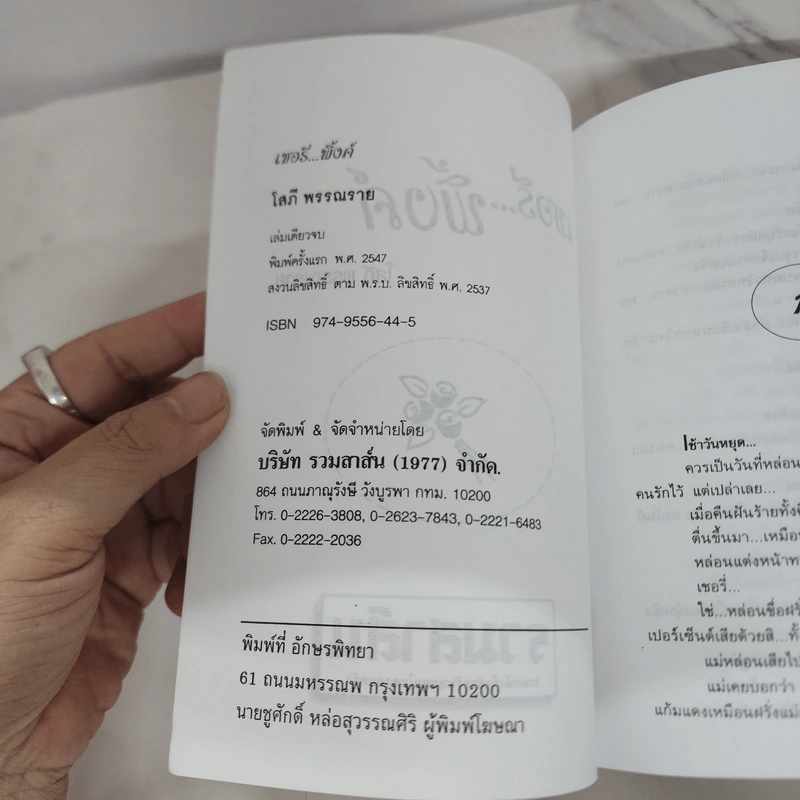 เชอรี่...พิ้งค์
โสภี พรรณราย
เล่มเดียวจบ
พิมพ์ครั้งแรก พ.ศ. 2547
สงวนลิขสิทธิ์ ตาม พ.ร.บ. ลิขสิทธิ์ พ.ศ. 2537
ISBN 974-9556-44-5
จัดพิมพ์ & จัดจำหน่ายโดย
บริษัท รวมสาส์น (1977) จำกัด.
864 ถนนภาณุรังษี วังบูรพา กทม. 10200
โทร. 0-2226-3808, 0-2623-7843, 0-2221-6483
Fax. 0-2222-2036
พิมพ์ที่ อักษรพิทยา
61 ถนนมหรรณพ กรุงเทพฯ 10200
นายชูศักดิ์ หล่อสุวรรณศิริ ผู้พิมพ์โฆษณา
เช้าวันหยุด...
ควรเป็นวันที่หล่อน
คนรักไว้ แต่เปล่าเลย...
เมื่อคืนฝันร้ายทั้ง
ตื่นขึ้นมา...เหมือน
หล่อนแต่งหน้าทา
เชอรี่...
ใช่...หล่อนชื่อฝรั่ง
เปอร์เซ็นต์เสียด้วยสิ...
แม่หล่อนเสียไป
แม่เคยบอกว่า
แก้มแดงเหมือนฝรั่ง